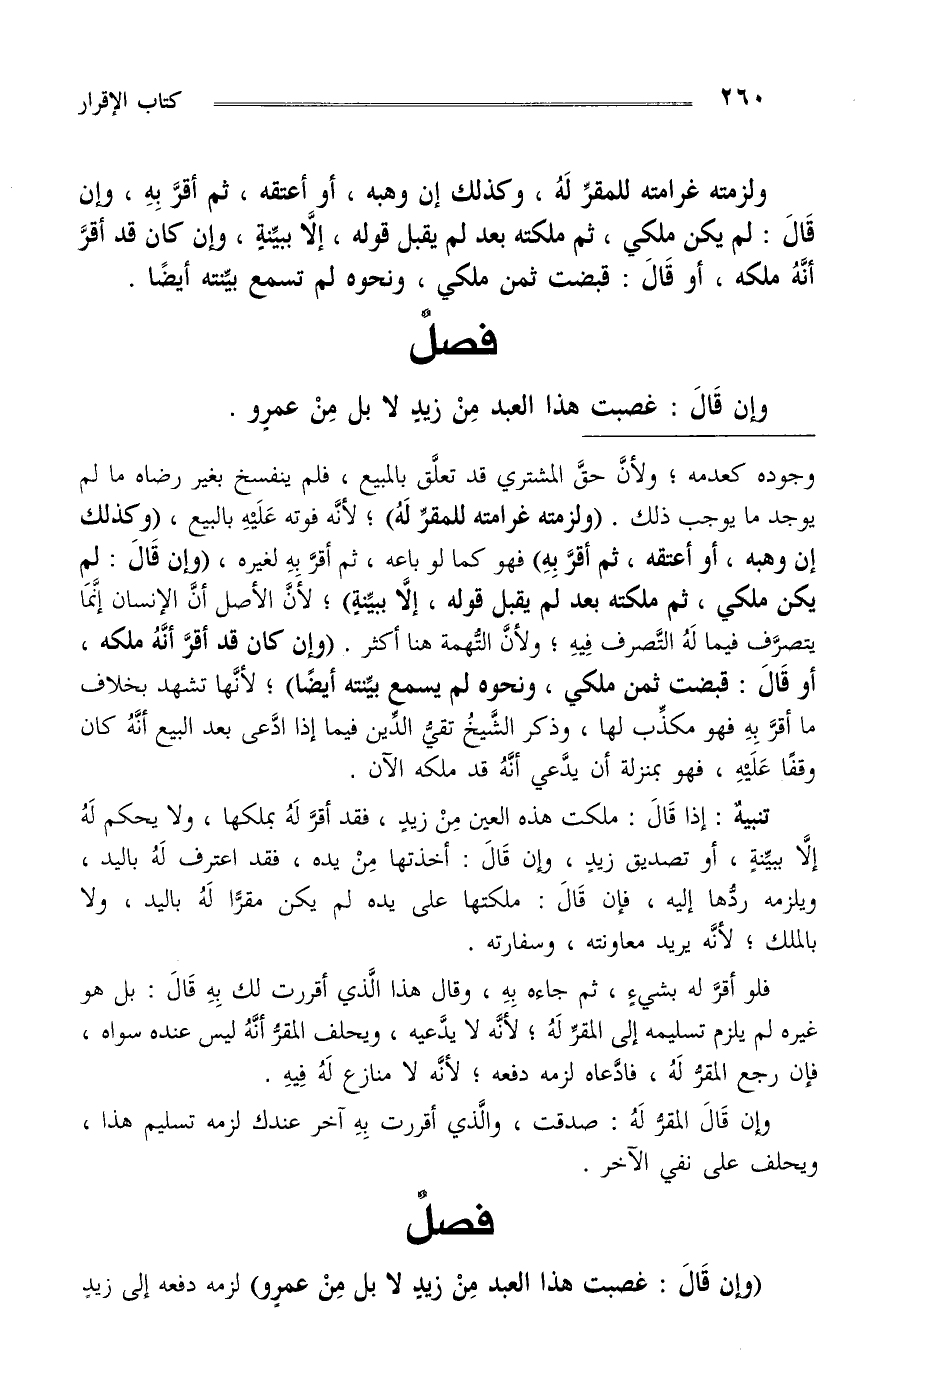 ٢٦٠ كتاب الإقرار
ولزمته غرامته للمقرِّ لَهُ ، وكذلك إن وهبه ، أو أعتقه ، ثم أقرَّ بِهِ ، وإن
قَالَ : لم يكن ملكي ، ثم ملكته بعد لم يقبل قوله ، إلَّا ببيِّنةٍ ، وإن كان قد أقرَّ
أنَّهُ ملكه ، أو قَالَ : قبضت ثمن ملكي ، ونحوه لم تسمع بيِّنته أيضًا .
فصلٌ
وإن قَالَ : غصبت هذا العبد مِنْ زيدٍ لا بل مِنْ عمرٍو .
وجوده كعدمه ؛ ولأنَّ حقَّ المشتري قد تعلَّق بالمبيع ، فلم ينفسخ بغير رضاه ما لم
يوجد ما يوجب ذلك . (ولزمته غرامته للمقرِّ لَهُ) ؛ لأنَّه فوته عَلَيْهِ بالبيع ، (وكذلك
إن وهبه ، أو أعتقه ، ثم أقرَّ بِهِ) فهو كما لو باعه ، ثم أقرَّ بِهِ لغيره ، (وإن قَالَ : لم
يكن ملكي ، ثم ملكته بعد لم يقبل قوله ، إلَّا ببيِّنةٍ) ؛ لأنَّ الأصل أنَّ الإنسان إنَّمَا
يتصرَّف فيما لَهُ التَّصرف فِيهِ ؛ ولأنَّ التُّهمة هنا أكثر . (وإن كان قد أقرَّ أنَّهُ ملكه ،
أو قَالَ : قبضت ثمن ملكي ، ونحوه لم يسمع بيِّنته أيضًا) ؛ لأنَّها تشهد بخلاف
ما أقرَّ بِهِ فهو مكذِّب لها ، وذكر الشَّيخُ تقيُّ الدِّين فيما إذا ادَّعى بعد البيع أنَّهُ كان
وقفًا عَلَيْهِ ، فهو بمنزلة أن يدَّعي أنَّهُ قد ملكه الآن .
تنبيهٌ : إذا قَالَ : ملكت هذه العين مِنْ زيدٍ ، فقد أقرَّ لَهُ بملكها ، ولا يحكم لَهُ
إلَّا ببيِّنةٍ ، أو تصديق زيدٍ ، وإن قَالَ : أخذتها مِنْ يده ، فقد اعترف لَهُ باليد ،
ويلزمه ردُّها إليه ، فإن قَالَ : ملكتها على يده لم يكن مقرًّا لَهُ باليد ، ولا
بالملك ؛ لأنَّه يريد معاونته ، وسفارته .
فلو أقرَّ له بشيءٍ ، ثم جاءه بِهِ ، وقال هذا الَّذي أقررت لك بِهِ قَالَ : بل هو
غيره لم يلزم تسليمه إلى المقرِّ لَهُ ؛ لأنَّه لا يدَّعيه ، ويحلف المقرُّ أنَّهُ ليس عنده سواه ،
فإن رجع المقرُّ لَهُ ، فادَّعاه لزمه دفعه ؛ لأنَّه لا منازع لَهُ فِيهِ .
وإن قَالَ المقرُّ لَهُ : صدقت ، والَّذي أقررت بِهِ آخر عندك لزمه تسليم هذا ،
ويحلف على نفي الآخر .
فصلٌ
(وإن قَالَ : غصبت هذا العبد مِنْ زيدٍ لا بل مِنْ عمرٍو) لزمه دفعه إلى زيدٍ